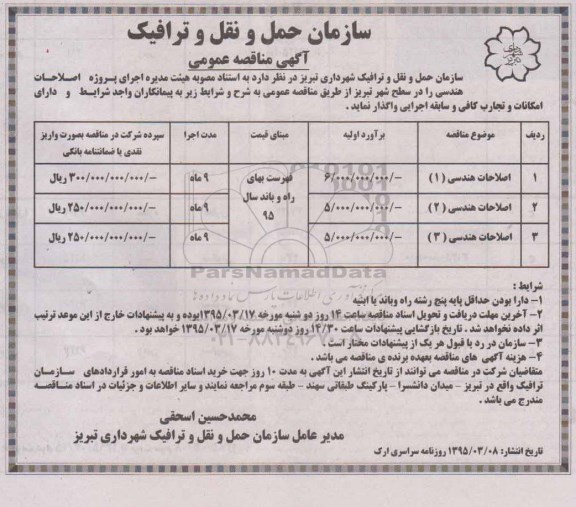 سازمان حمل و نقل و ترافیک
آگهی مناقصه عمومی
سازمان حمل و نقل و ترافیک شهرداری تبریز در نظر دارد به استناد مصوبه هیئت مدیره اجرای پروژه اصلاحات
هندسی را در سطح شهر تبریز از طریق مناقصه عمومی به شرح و شرایط زیر به پیمانکاران واجد شرایط و دارای
امکانات و تجارب کافی و سابقه اجرایی واگذار نماید .
ردیف موضوع مناقصه برآورد اولیه مبنای قیمت مدت اجرا سپرده شرکت در مناقصه بصورت واریز نقدی یا ضمانتنامه بانکی
۱ اصلاحات هندسی (۱) ۶/۰۰۰/۰۰۰/۰۰۰/- فهرست بهای راه و باند سال ۹۵ ۹ ماه ۳۰۰/۰۰۰/۰۰۰/۰۰۰/- ریال
۲ اصلاحات هندسی (۲) ۵/۰۰۰/۰۰۰/۰۰۰/- ۹ ماه ۲۵۰/۰۰۰/۰۰۰/۰۰۰/- ریال
۳ اصلاحات هندسی (۳) ۵/۰۰۰/۰۰۰/۰۰۰/- ۹ ماه ۲۵۰/۰۰۰/۰۰۰/۰۰۰/- ریال
ParsNamadData
شرایط :
۱- دارا بودن حداقل پایه پنج رشته راه وباند یا ابنیه
۲- آخرین مهلت دریافت و تحویل اسناد مناقصه ساعت ۱۴ روز دو شنبه مورخه ۱۳۹۵/۰۳/۱۷بوده و به پیشنهادات خارج از این موعد ترتیب
اثر داده نخواهد شد . تاریخ بازگشایی پیشنهادات ساعت ۱۴/۳۰ روز دوشنبه مورخه ۱۳۹۵/۰۳/۱۷ خواهد بود .
۳- سازمان در رد یا قبول هر یک از پیشنهادات مختار است .
۴- هزینه آگهی های مناقصه بعهده برنده ی مناقصه می باشد .
متقاضیان شرکت در مناقصه می توانند از تاریخ انتشار این آگهی به مدت ۱۰ روز جهت خرید اسناد مناقصه به امور قراردادهای سازمان
ترافیک واقع در تبریز - میدان دانشسرا - پارکینگ طبقاتی سهند - طبقه سوم مراجعه نمایند و سایر اطلاعات و جزئیات در اسناد مناقصه
مندرج می باشد .
محمدحسین اسحقی
مدیر عامل سازمان حمل و نقل و ترافیک شهرداری تبریز
تاریخ انتشار: ۱۳۹۵/۰۳/۰۸ روزنامه سراسری ارک